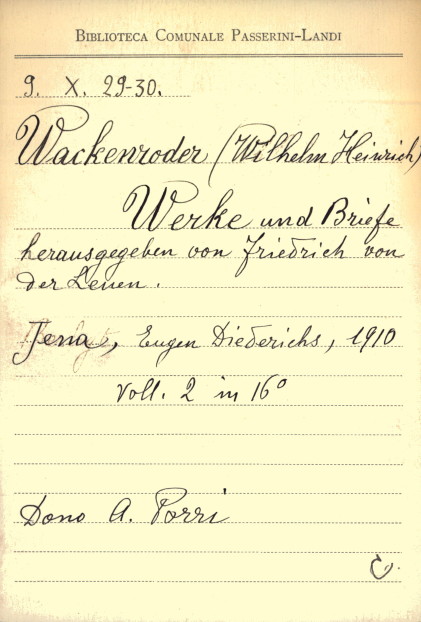 BIBLIOTECA COMUNALE PASSERINI-LANDI
9. X. 29-30.
Wackenroder (Wilhelm Heinrich)
Werke und Briefe
herausgegeben von Friedrich von
der Leuen.
Jena, Eugen Diederichs, 1910
Voll. 2 in 16°
Dono A. Porri